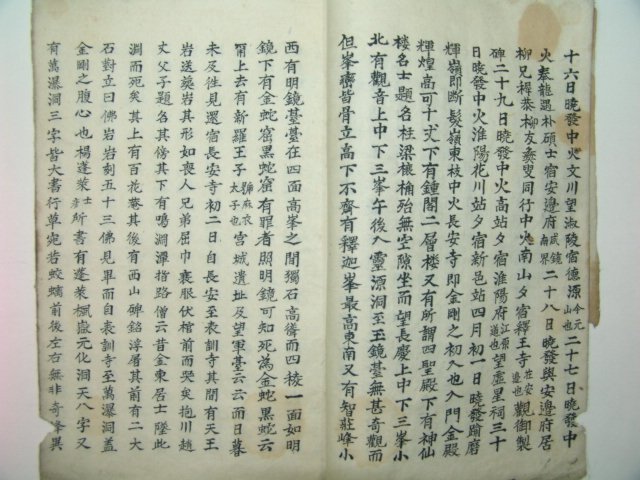 十六日曉發中火文川望淑陵宮德源今元山也二十七日曉發中
火奉龍遇朴碩士宿安邊府咸鏡南界二十八日曉發與安邊府居
柳兄樨恭柳友㷜燮同行中火南山夕宿釋王寺在安邊也觀御製
碑二十九日曉發中火高站夕宿淮陽府江原道也望虛星祠三十
日曉發中火淮陽花川站夕宿新邑站四月初一日曉發踰府
輝嶺即斷髮嶺東枝中火長安寺即金剛之初入也入門金殿
輝煌高可十丈下有鍾閣二層樓又有所謂四聖殿下有神仙
樓名士題名柱梁榱桷殆無空隙坐而望長慶上中下三峯小
北有觀音上中下三峯午後入靈源洞至玉鏡臺無甚奇觀而
但峯巒皆骨立高下不齊有釋迦峯最高東南又有智莊峰小
西有明鏡臺臺在四面高峯之間獨石高聳而四稜一面如明
鏡下有金蛇窟黑蛇窟有罪者照明鏡可知死為金蛇黑蛇云
爾上去有新羅王子號麻衣太子也宮城遺址及望軍臺云云而日暮
未及徃見還宿長安寺初二日自長安至表訓寺其間有天王
岩送葬岩其形如喪人兄弟屈巾衰服伏棺前而哭矣抱川趙
丈父子題名其傍其下有鳴淵潭指路僧云昔金東居士墜此
淵而死矣其上有百花庵其後有西山碑銘浮屠其前有二大
石對立曰佛岩岩刻五十三佛見畢而自表訓寺至萬瀑洞盖
金剛之腹心也楊蓬萊士彦所書有蓬萊楓嶽元化洞天八字又
有萬瀑洞三字皆大書行草宛若蛟螭前後左右無非奇峰異